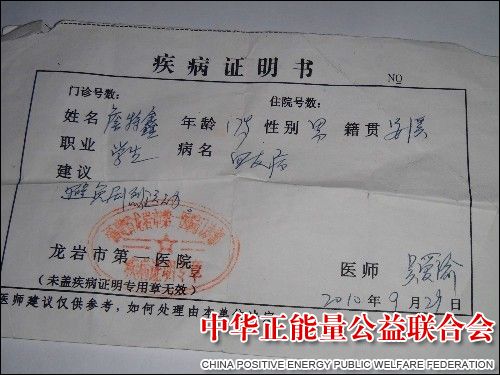 疾病证明书
NO
门诊号数： 住院号数：
姓名 詹特鑫 年龄 性别 男 籍贯 安溪
职业 学生 病名
建议
避免剧烈活动。
龙岩市第一医院 章
（未盖疾病证明专用章无效） 医师
2010年9月29日
医师建议仅供参考，如何处理由本单位决定
中华正能量公益联合会
CHINA POSITIVE ENERGY PUBLIC WELFARE FEDERATION